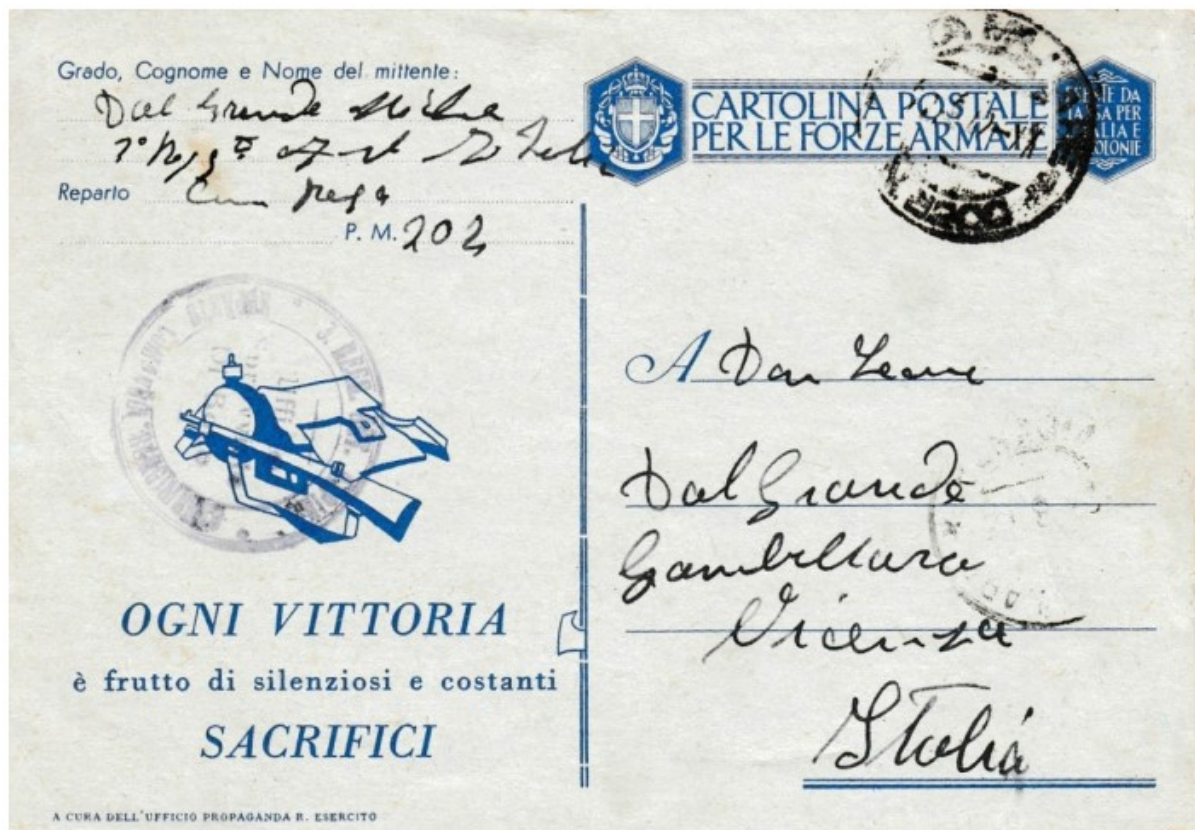 Grado, Cognome e Nome del mittente:
Dal Grande
Reparto
P. M. 202
CARTOLINA POSTALE
PER LE FORZE ARMATE
ESENTE DA
TASSA PER
ITALIA E
COLONIE
A Don Leone
Dal Grande
Gambellara
Vicenza
Italia
OGNI VITTORIA
è frutto di silenziosi e costanti
SACRIFICI
A CURA DELL'UFFICIO PROPAGANDA R. ESERCITO